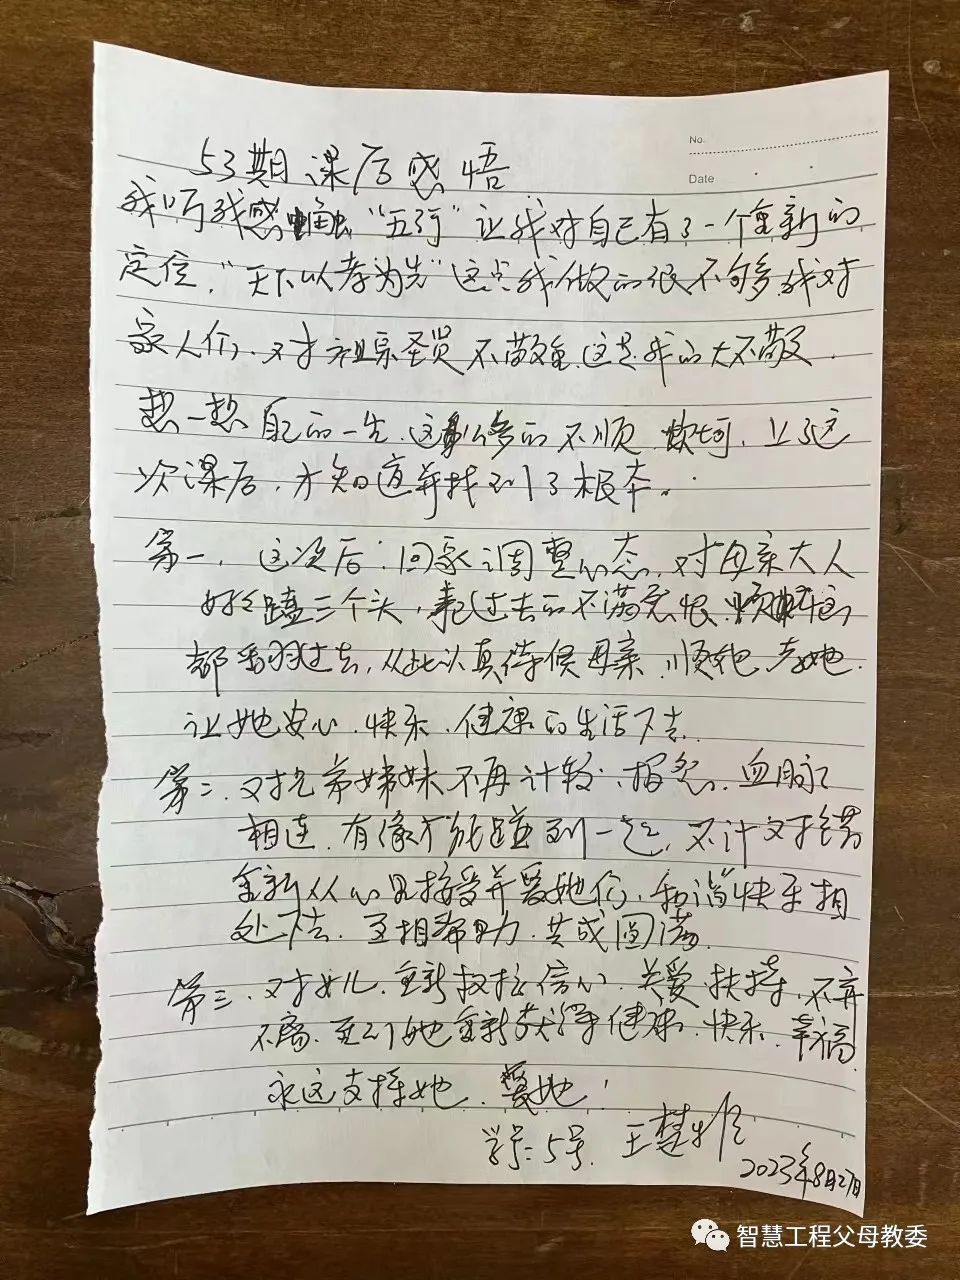 No.
Date
53期课后感悟
我听我感触 "五行" 让我对自己有了一个重新的
定位, "天下以孝为先" 这点我做的很不够多, 我对
家人们、对祖宗圣贤不敬重. 这是我的大不敬.
想一想自己的一生. 这么多的不顺坎坷, 上了这
次课后, 才知道并找到了根本.
第一, 这次后: 回家调整心态, 对母亲大人
好好磕三个头, 过去的不满怨恨、
都翻过去, 从此认真待候母亲、顺她 孝她.
让她安心、快乐、健康的生活下去.
第二、对兄弟姊妹不再计较: 报怨、血脉
相连、有缘才能碰到一起, 不计对错
重新从心里接受并爱她们, 和谐快乐相
处下去. 互相帮助, 共成圆满.
第三、对女儿. 重新树立信心、关爱、扶持, 不弃
不离、至到她重新获得健康、快乐、幸福
永远支持她、爱她!
学号: 5号. 王楚
2023年8月27日
智慧工程父母教委